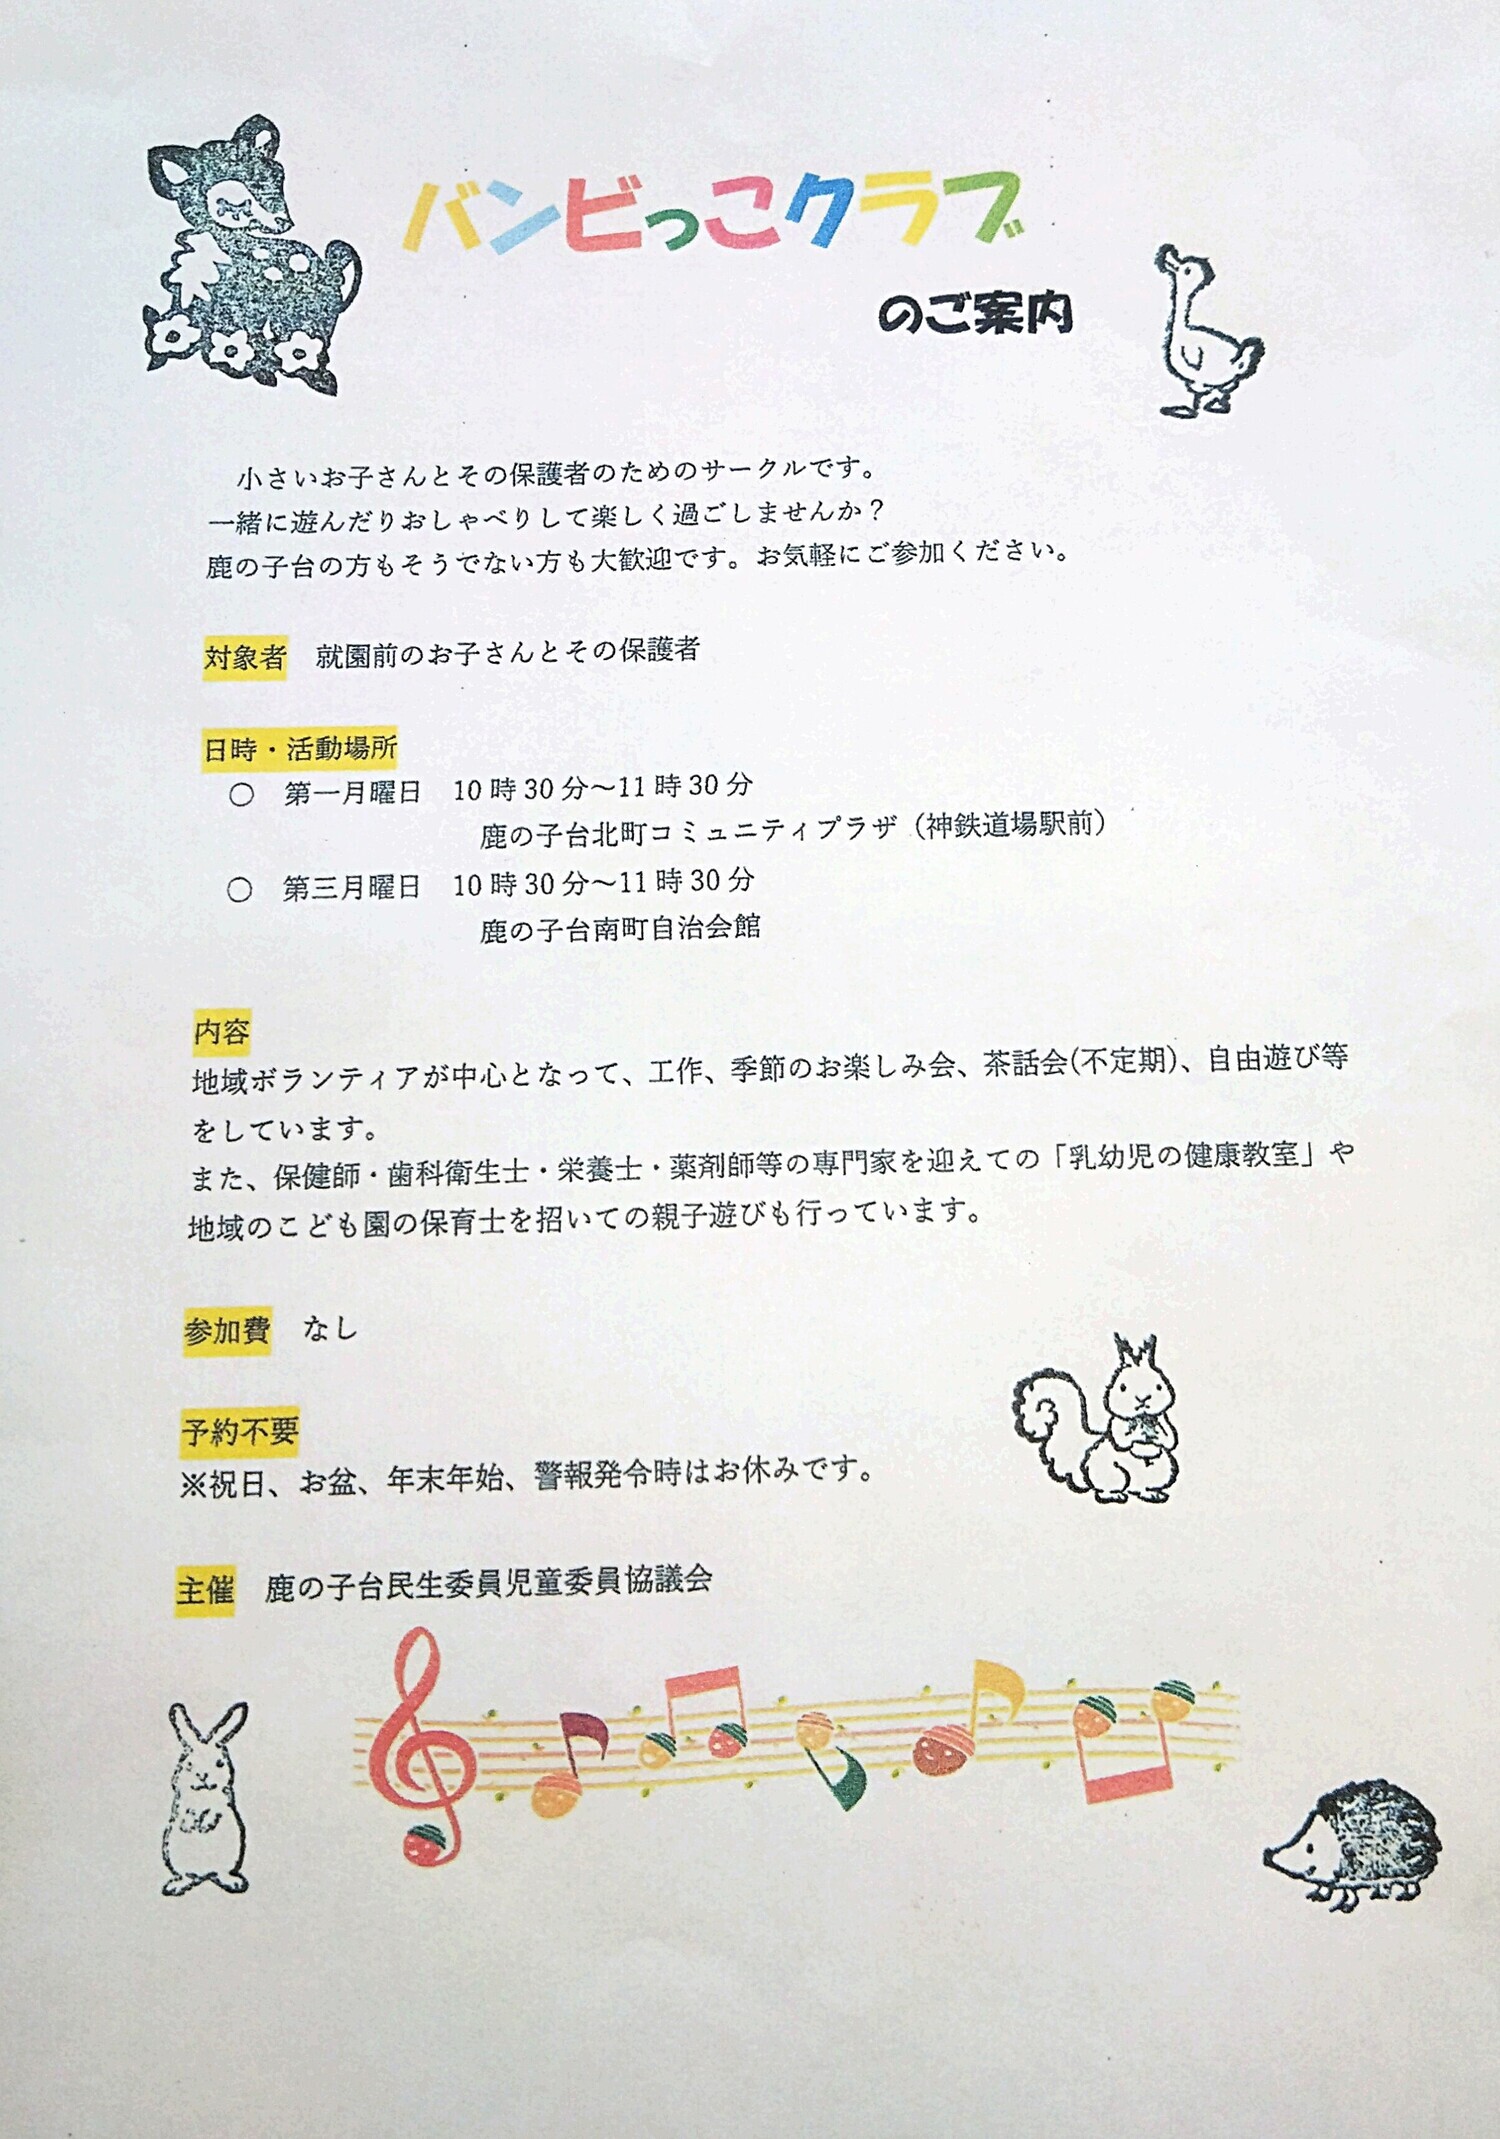 バンビっこクラブ
のご案内
小さいお子さんとその保護者のためのサークルです。
一緒に遊んだりおしゃべりして楽しく過ごしませんか？
鹿の子台の方もそうでない方も大歓迎です。お気軽にご参加ください。
対象者　就園前のお子さんとその保護者
日時・活動場所
○　第一月曜日　10時30分～11時30分
鹿の子台北町コミュニティプラザ（神鉄道場駅前）
○　第三月曜日　10時30分～11時30分
鹿の子台南町自治会館
内容
地域ボランティアが中心となって、工作、季節のお楽しみ会、茶話会(不定期)、自由遊び等
をしています。
また、保健師・歯科衛生士・栄養士・薬剤師等の専門家を迎えての「乳幼児の健康教室」や
地域のこども園の保育士を招いての親子遊びも行っています。
参加費　なし
予約不要
※祝日、お盆、年末年始、警報発令時はお休みです。
主催　鹿の子台民生委員児童委員協議会